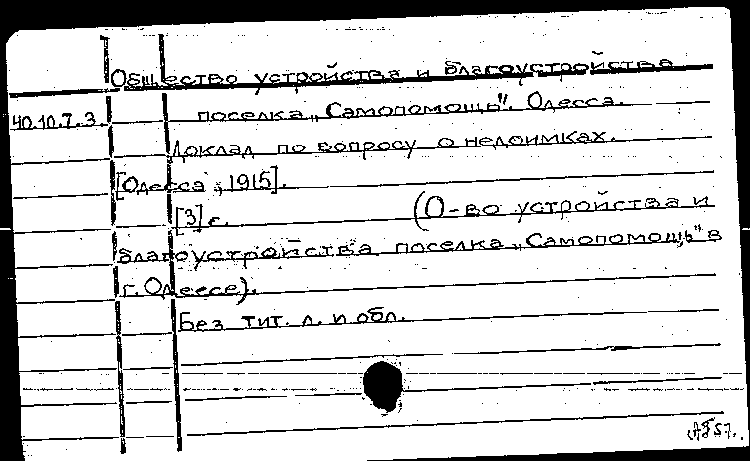 Общество устройства и благоустройства
40.10.7.3. поселка „Самопомощь". Одесса.
Доклад по вопросу о недоимках.
[Одесса, 1915].
[3] с. (О-во устройства и
благоустройства поселка „Самопомощь" в
г. Одессе).
Без тит. л. и обл.